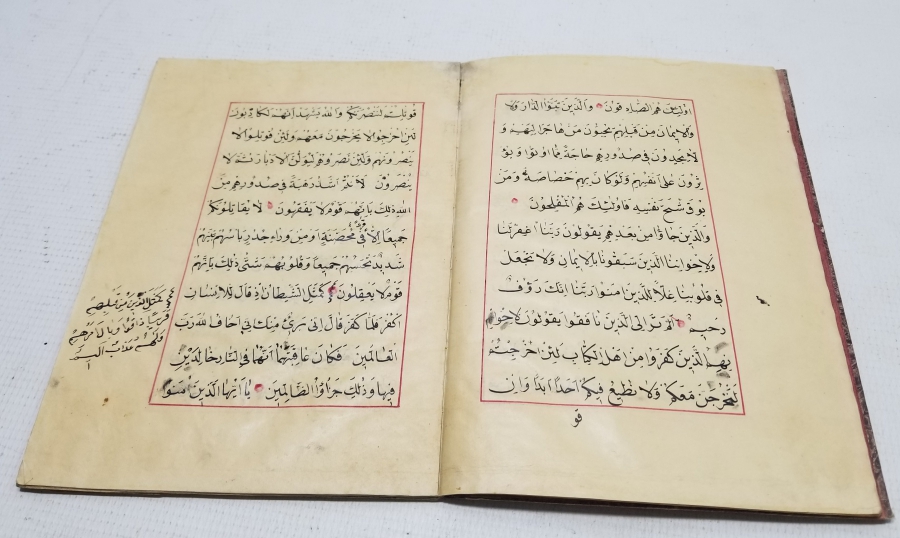 اولئك هم الصادقون والذين تبوؤا الدار ولا
والايمان من قبلهم يحبون من هاجر اليهم و
لا يجدون في صدورهم حاجة مما اوتوا ويؤ
ثرون على انفسهم ولو كان بهم خصاصة ومن
يوق شح نفسه فاولئك هم المفلحون
والذين جاؤا من بعدهم يقولون ربنا اغفر لنا
ولاخواننا الذين سبقونا بالايمان ولا تجعل
في قلوبنا غلا للذين امنوا ربنا انك رؤف
رحيم الم تر الى الذين نافقوا يقولون لاخوانهم
الذين كفروا من اهل الكتاب لئن اخرجتم
لنخرجن معكم ولا نطيع فيكم احدا ابدا وان
قو
قوتلتم لننصرنكم والله يشهد انهم لكاذبون
لئن اخرجوا لا يخرجون معهم ولئن قوتلوا لا
ينصرونهم ولئن نصروهم ليولن الادبار ثم لا
ينصرون لانتم اشد رهبة في صدورهم من
الله ذلك بانهم قوم لا يفقهون لا يقاتلونكم
جميعا الا في قرى محصنة او من وراء جدر باسهم بينهم
شديد تحسبهم جميعا وقلوبهم شتى ذلك بانهم
قوم لا يعقلون كمثل الشيطان اذ قال للانسان
اكفر فلما كفر قال اني برئ منك اني اخاف الله رب
العالمين فكان عاقبتهما انهما في النار خالدين
فيها وذلك جزاؤا الظالمين يا ايها الذين امنوا
كمثل الذين من قبلهم
قريبا ذاقوا وبال امرهم
ولهم عذاب اليم